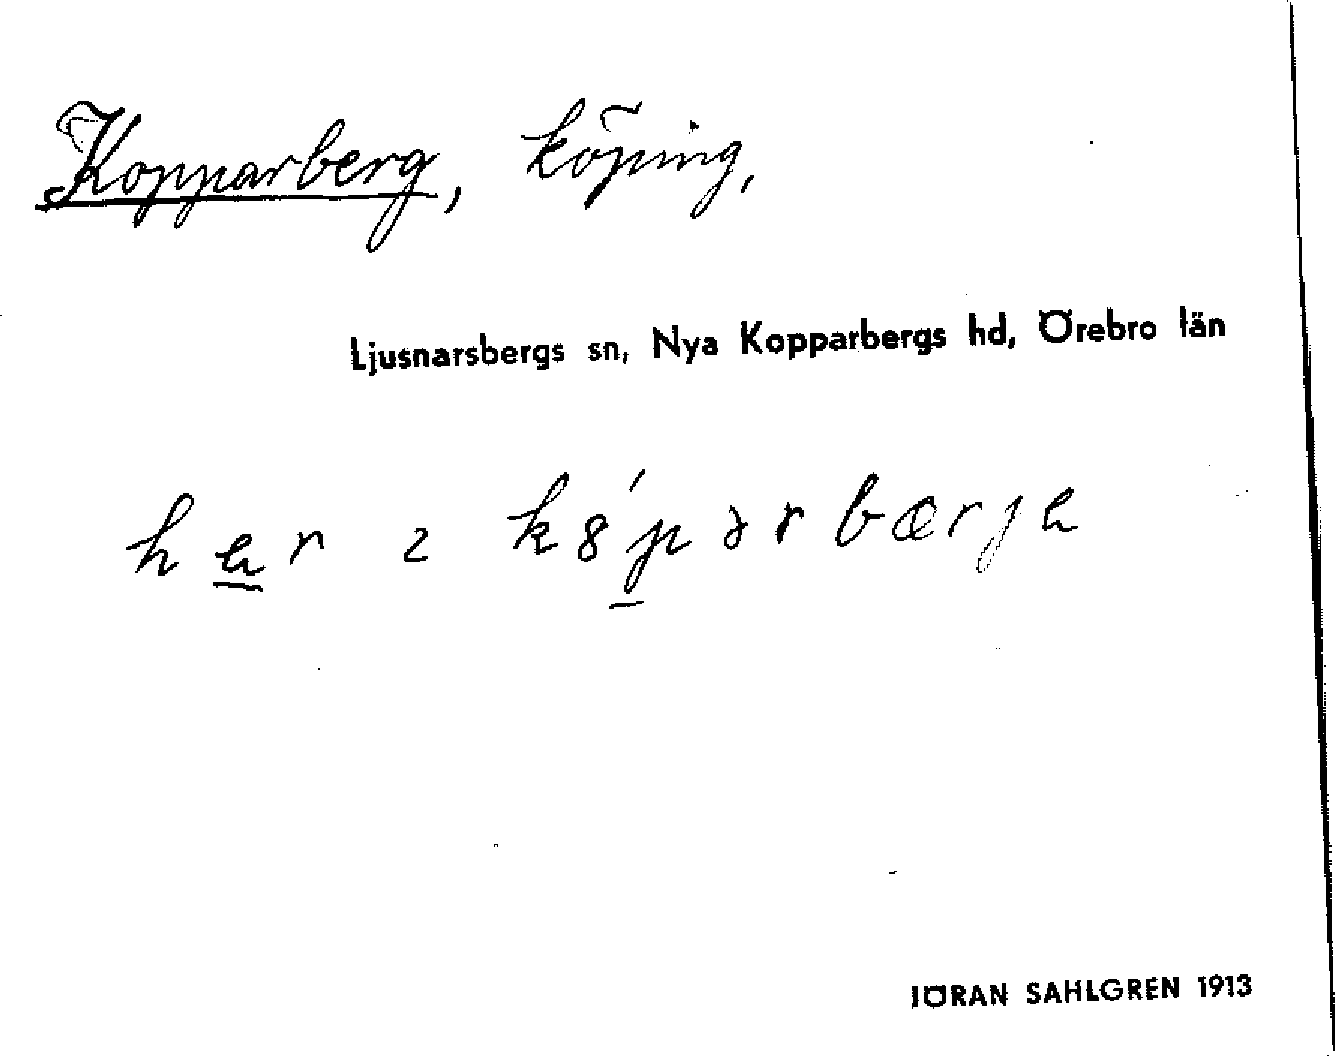 Kopparberg, köping,
Ljusnarsbergs sn, Nya Kopparbergs hd, Örebro län
JÖRAN SAHLGREN 1913